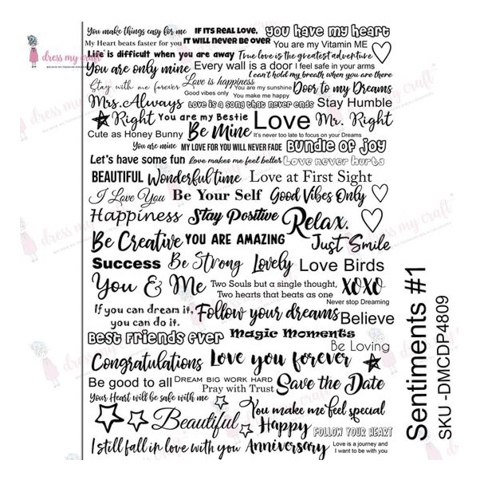 dress my craft
You make things easy for me IF ITS REAL LOVE, You have my heart
My Heart beats faster for you IT WILL NEVER BE OVER You are my Vitamin ME
Life is difficult when you are away True love is the greatest adventure
You are only mine Every wall is a door I feel safe in your arms
Stay with me forever Love is happiness I can't hold my breath when you are there
Good vibes only You are my sunshine Door to my Dreams
Mrs. Always You make me happy Love is a song that never ends Stay Humble
Right You are my Bestie Love Mr. Right
Cute as Honey Bunny Be Mine It's never too late to focus on your Dreams
You are mine MY LOVE FOR YOU WILL NEVER FADE Bundle of Joy
Let's have some fun Love makes me feel better Love never hurts
BEAUTIFUL Wonderful time Love at First Sight
I Love You Be Your Self Good Vibes Only
Happiness Stay Positive Relax.
Be Creative YOU ARE AMAZING Just Smile
Success Be Strong Lovely Love Birds
You & Me Two Souls but a single thought, XOXO
Two hearts that beats as one Never stop Dreaming
If you can dream it, Follow your dreams Believe
you can do it.
Best Friends Ever Magic Moments Be Loving
Congratulations Love you forever
Be good to all DREAM BIG WORK HARD Save the Date
Pray with Trust
Your Heart will be safe with me You make me feel special
Beautiful Happy FOLLOW YOUR HEART
I still fall in love with you Anniversary Love is a journey and
I want to be with you
Sentiments #1
SKU -DMCDP4809